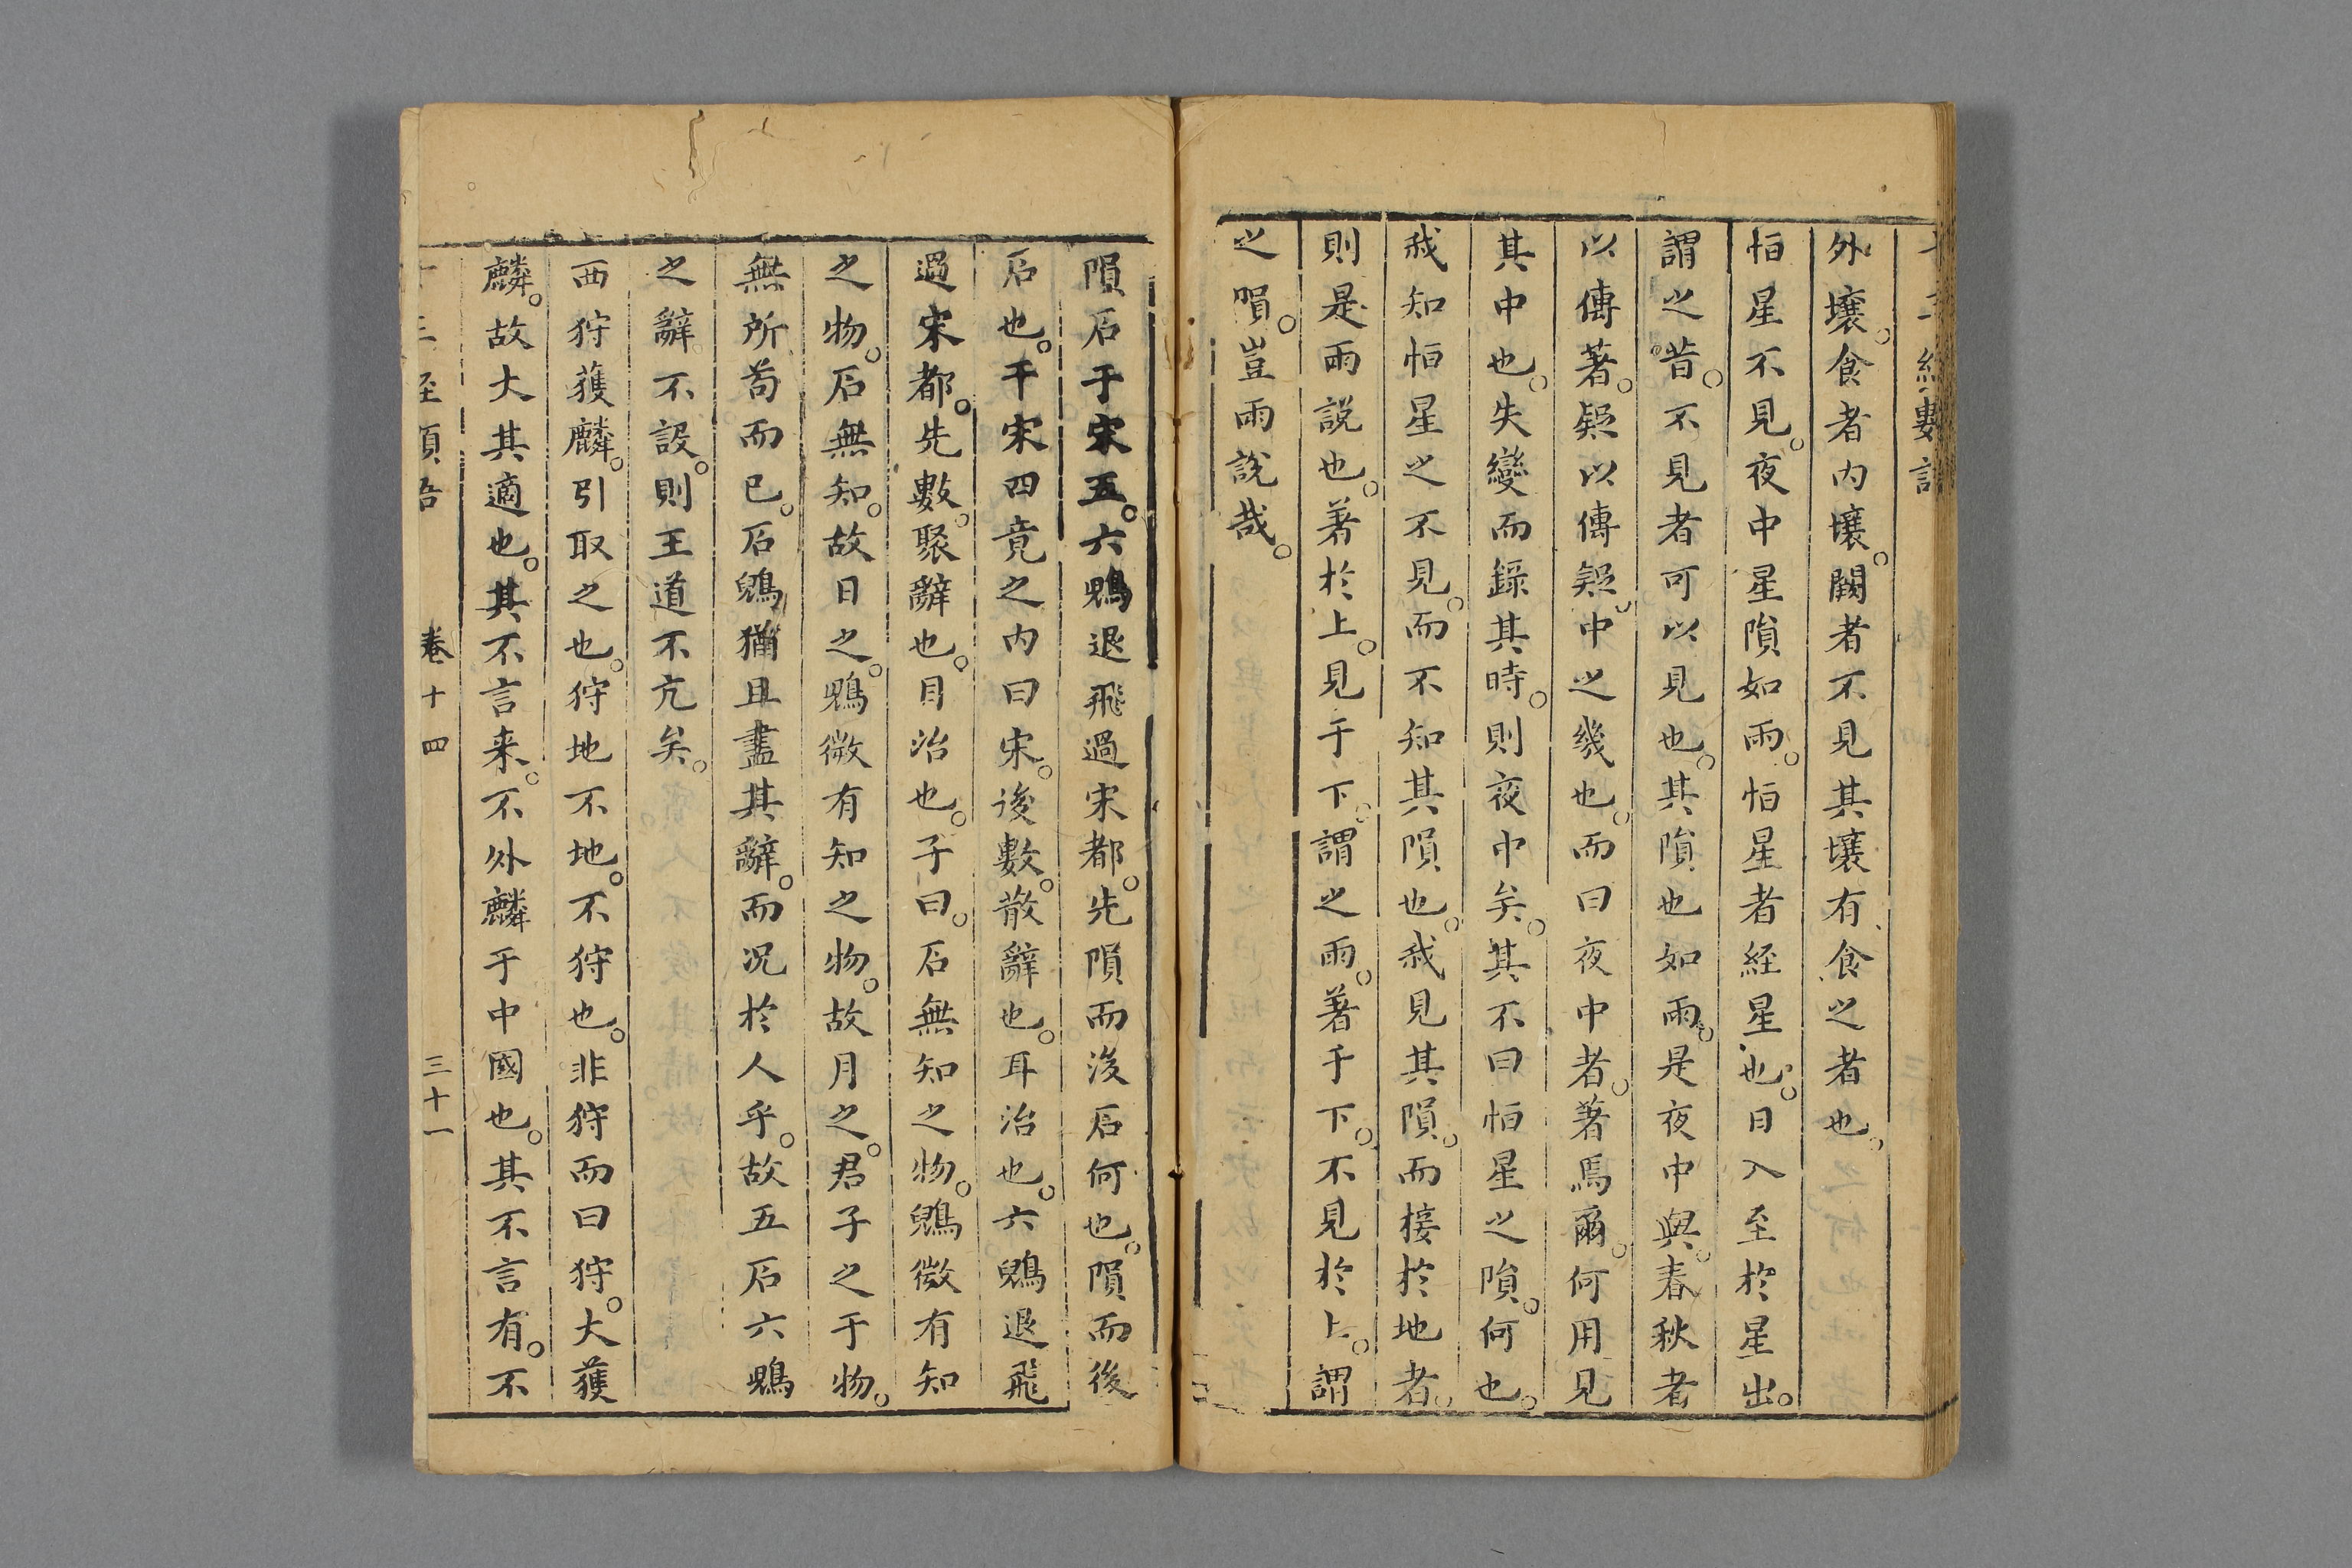 外壤。食者内壤。闕者不見其壤有食之者也。
恒星不見。夜中星隕如雨。恒星者經星也。日入至於星出。
謂之昔。不見者可以見也。其隕也如雨。是夜中與。春秋者
以傳著。疑以傳疑。中之幾也。而曰夜中者。著焉爾。何用見
其中也。失變而錄其時。則夜中矣。其不曰恒星之隕。何也。
我知恒星之不見。而不知其隕也。我見其隕。而接於地者。
則是雨說也。著於上。見于下。謂之雨。著于下。不見於上。謂
之隕。豈雨說哉。
隕石于宋五。六鶂退飛過宋都。先隕而後石何也。隕而後
石也。于宋四竟之内曰宋。後數。散辭也。耳治也。六鶂退飛
過宋都。先數。聚辭也。目治也。子曰。石無知之物。鶂微有知
之物。石無知。故日之。鶂微有知之物。故月之。君子之于物。
無所苟而已。石鶂猶且盡其辭。而况於人乎。故五石六鶂
之辭不設。則王道不亢矣。
西狩獲麟。引取之也。狩地不地。不狩也。非狩而曰狩。大獲
麟。故大其適也。其不言来。不外麟于中國也。其不言有。不
卷十四 三十一